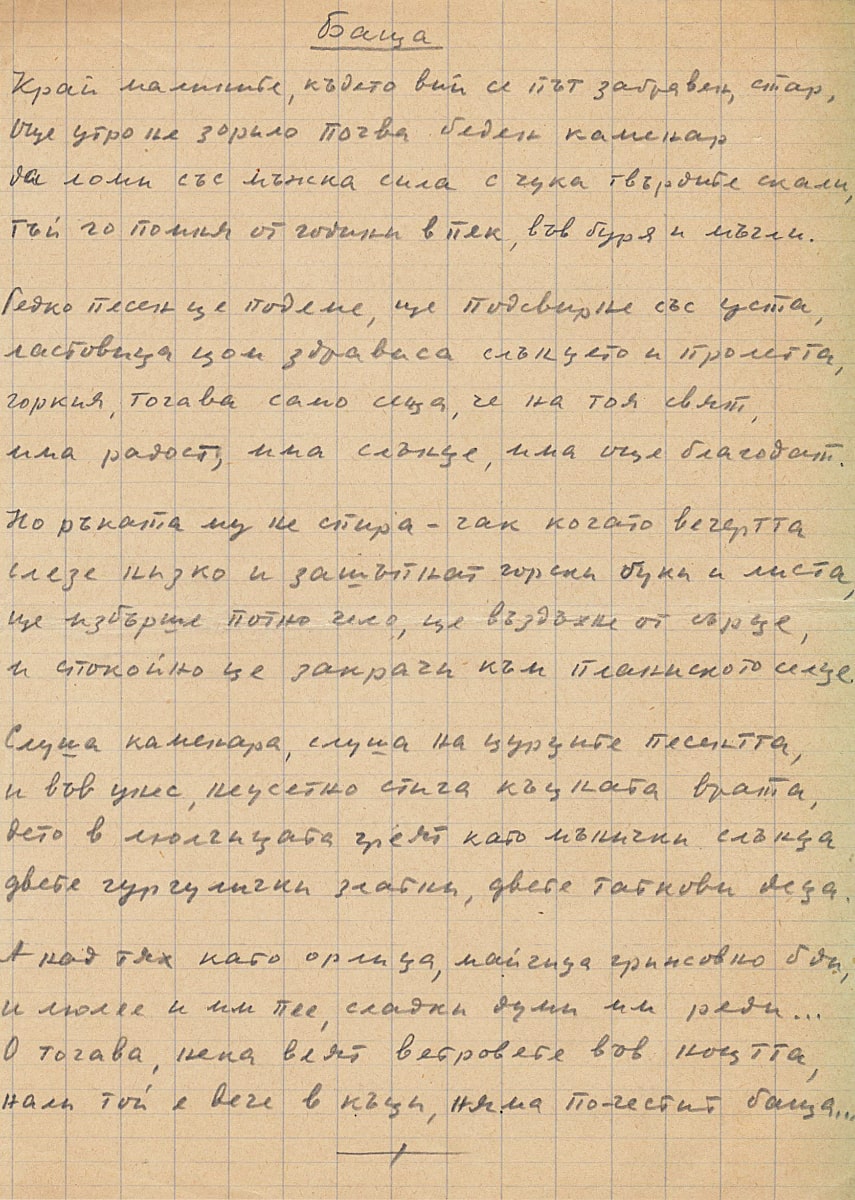 Баща
Край малините, където вий се път забравен, стар,
още утро не зорило почва беден каменар
да ломи със мъжка сила с чука твърдите скали,
тъй го помня от години в пек, във буря и мъгли.
Редко песен ще подеме, ще подсвирне със уста,
ластовица щом здрависа слънцето и пролетта,
горкия, тогава само сеща, че на тоя свят,
има радост, има слънце, има още благодат.
Но ръката му не спира – чак когато вечертта
слезе низко и зашъпнат горски буки и листа,
ще избърше потно чело, ще въздъхне от сърце,
и спокойно ще закрачи към планиското селце.
Слуша каменара, слуша на щурците песентта,
и във унес, неусетно стига къщната врата,
дето в люлчицата греят като мънички слънца
двете гургулички златни, двете таткови деца.
А над тях като орлица, майчица грижовно бди,
и люлее и им пее, сладки думи им реди...
О тогава, нека веят ветровете във нощта,
нали той е вече в къщи, няма по-честит баща...